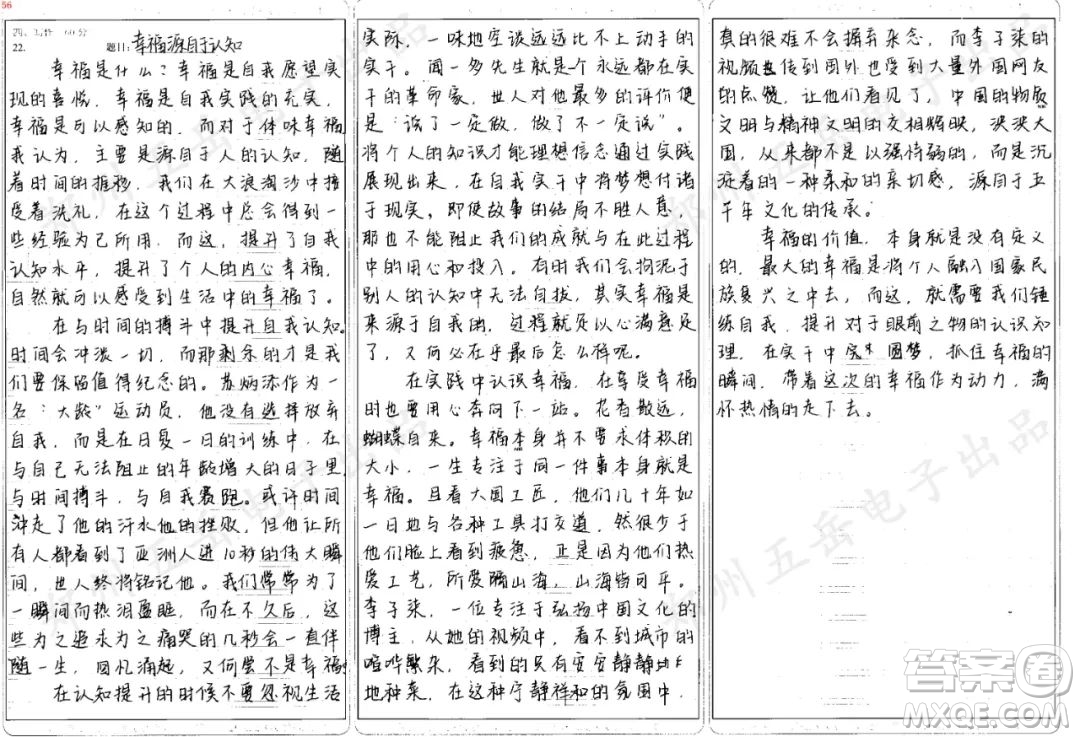 56
四、写作 60分
22.
题目：幸福源自于认知
幸福是什么？幸福是自我愿望实
现的喜悦，幸福是自我实践的充实，
幸福是可以感知的，而对于体味幸福
我认为，主要是源自于人的认知，随
着时间的推移，我们在大浪淘沙中接
受着洗礼，在这个过程中总会得到一
些经验为己所用，而这，提升了自我
认知水平，提升了个人的内心幸福，
自然就可以感受到生活中的幸福了。
在与时间的搏斗中提升自我认知。
时间会冲淡一切，而那剩余的才是我
们要保留值得纪念的。苏炳添作为一
名：大龄”运动员，他没有选择放弃
自我，而是在日复一日的训练中，在
与自己无法阻止的年龄增大的日子里
与时间搏斗，与自我赛跑。或许时间
冲走了他的汗水他的挫败，但他让所
有人都看到了亚洲人进10秒的伟大瞬
间，世人终将铭记他。我们常常为了
一瞬间而热泪盈眶，而在不久后，这
些为之追求为之痛哭的几秒会一直伴
随一生，回忆涌起，又何尝不是幸福
在认知提升的时候不要忽视生活
实际，一味地空谈远远比不上动手的
实干。闻一多先生就是一个永远都在实
干的革命家，世人对他最多的评价便
是：“说了一定做，做了不一定说”。
将个人的知识才能理想信念通过实践
展现出来，在自我实干中将梦想付诸
于现实，即使故事的结局不胜人意，
那也不能阻止我们的成就与在此过程
中的用心和投入。有时我们会拘泥于
别人的认知中无法自拔，其实幸福是
来源于自我的，过程就是心满意足
了，又何必在乎最后怎么样呢。
在实践中认识幸福，在享受幸福
时也要用心奔向下一站。花香散远，
蝴蝶自来。幸福本身并不要求体积的
大小，一生专注于同一件事本身就是
幸福。且看大国工匠，他们几十年如
一日地与各种工具打交道，然很少于
他们脸上看到疲惫，正是因为他们热
爱工艺，所爱隔山海，山海皆可平。
李子柒，一位专注于弘扬中国文化的
博主，从她的视频中，看不到城市的
喧哗繁杂，看到的只有安安静静的
地种菜，在这种宁静祥和的氛围中，
真的很难不会摒弃杂念，而李子柒的
视频也传到国外也受到大量外国网友
的点赞，让他们看见了，中国的物质
文明与精神文明的交相辉映，泱泱大
国，从来都不是以强恃弱的，而是沉
淀着的一种柔和的亲切感，源自于五
千年文化的传承。
幸福的价值，本身就是没有定义
的，最大的幸福是将个人融入国家民
族复兴之中去，而这，就需要我们锤
练自我，提升对于眼前之物的认识知
理，在实干中圆梦，抓住幸福的
瞬间，带着这次的幸福作为动力，满
怀热情的走下去。
郑州五岳电子出品
答案圈
MXQE.COM